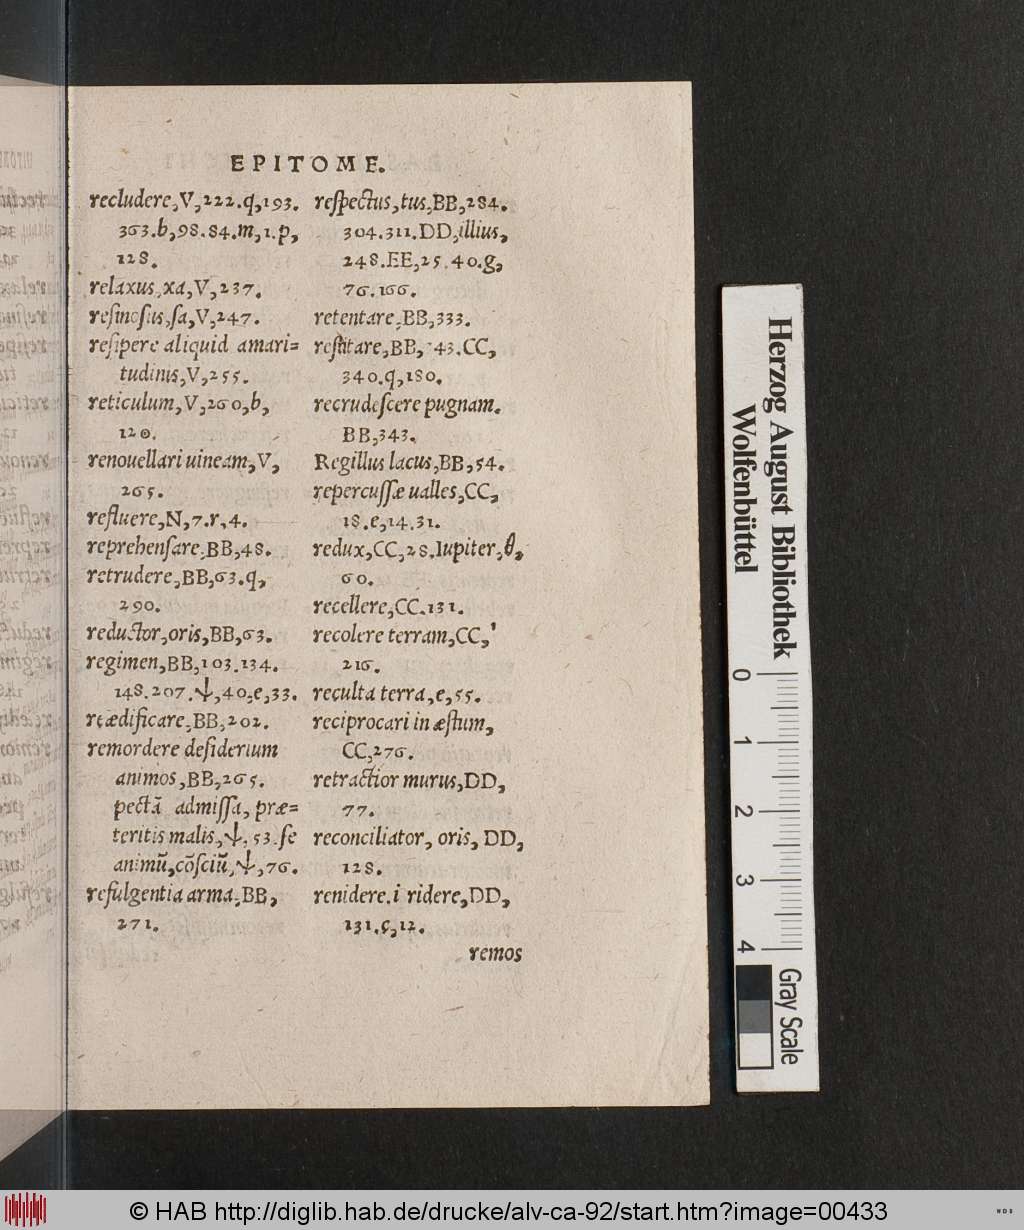 EPITOME.
recludere,V,222.q,193.
363.b,98.84.m,1.p,
128.
relaxus,xa,V,237.
resinosus,sa,V,247.
resipere aliquid amari=
tudinis,V,255.
reticulum,V,260,b,
120.
renouellari uineam,V,
265.
refluere,N,7.r,4.
reprehensare,BB,48.
retrudere,BB,63.q,
290.
reductor,oris,BB,63.
regimen,BB,103.134.
148.207.ψ,40,e,33.
reædificare,BB,202.
remordere desiderium
animos,BB,265.
pectā admissa, præ=
teritis malis,ψ,53.se
animū,cōsciū,ψ,76.
refulgentia arma,BB,
271.
respectus,tus,BB,284.
304.311.DD,illius,
248.EE,25.40.g,
76.166.
retentare,BB,333.
restitare,BB, 43.CC,
340.q,180.
recrudescere pugnam.
BB,343.
Regillus lacus,BB,54.
repercussæ ualles,CC,
18.e,14.31.
redux,CC,28.Iupiter,θ,
60.
recellere,CC.131.
recolere terram,CC,
216.
reculta terra,e,55.
reciprocari in æstum,
CC,276.
retractior murus,DD,
77.
reconciliator, oris, DD,
128.
renidere.i ridere,DD,
131.ç,12.
remos
Herzog August Bibliothek
Wolfenbüttel
0 1 2 3 4
Gray Scale
© HAB http://diglib.hab.de/drucke/alv-ca-92/start.htm?image=00433